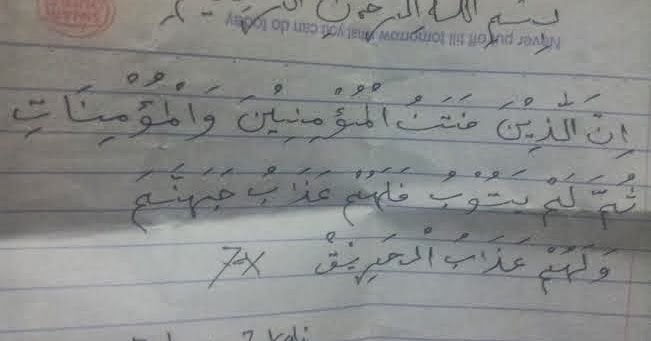 بسم الله الرحمن الرحيم
Never put off till tomorrow what you can do today
اِنَّ الَّذِيْنَ فَتَنُ الْمُؤْمِنِيْنَ وَالْمُؤْمِنَاتِ
ثُمَّ لَمْ يَتُوْبُ فَلَهُمْ عَذَابُ جَهَنَّمَ
وَلَهُمْ عَذَابُ الْحَرِيْقْ 7-X